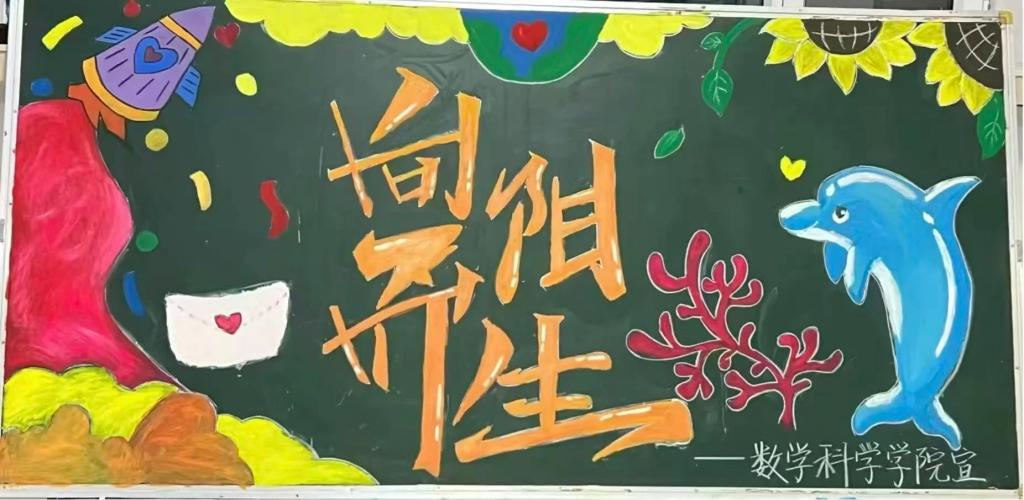 向阳而生
——数学科学学院宣